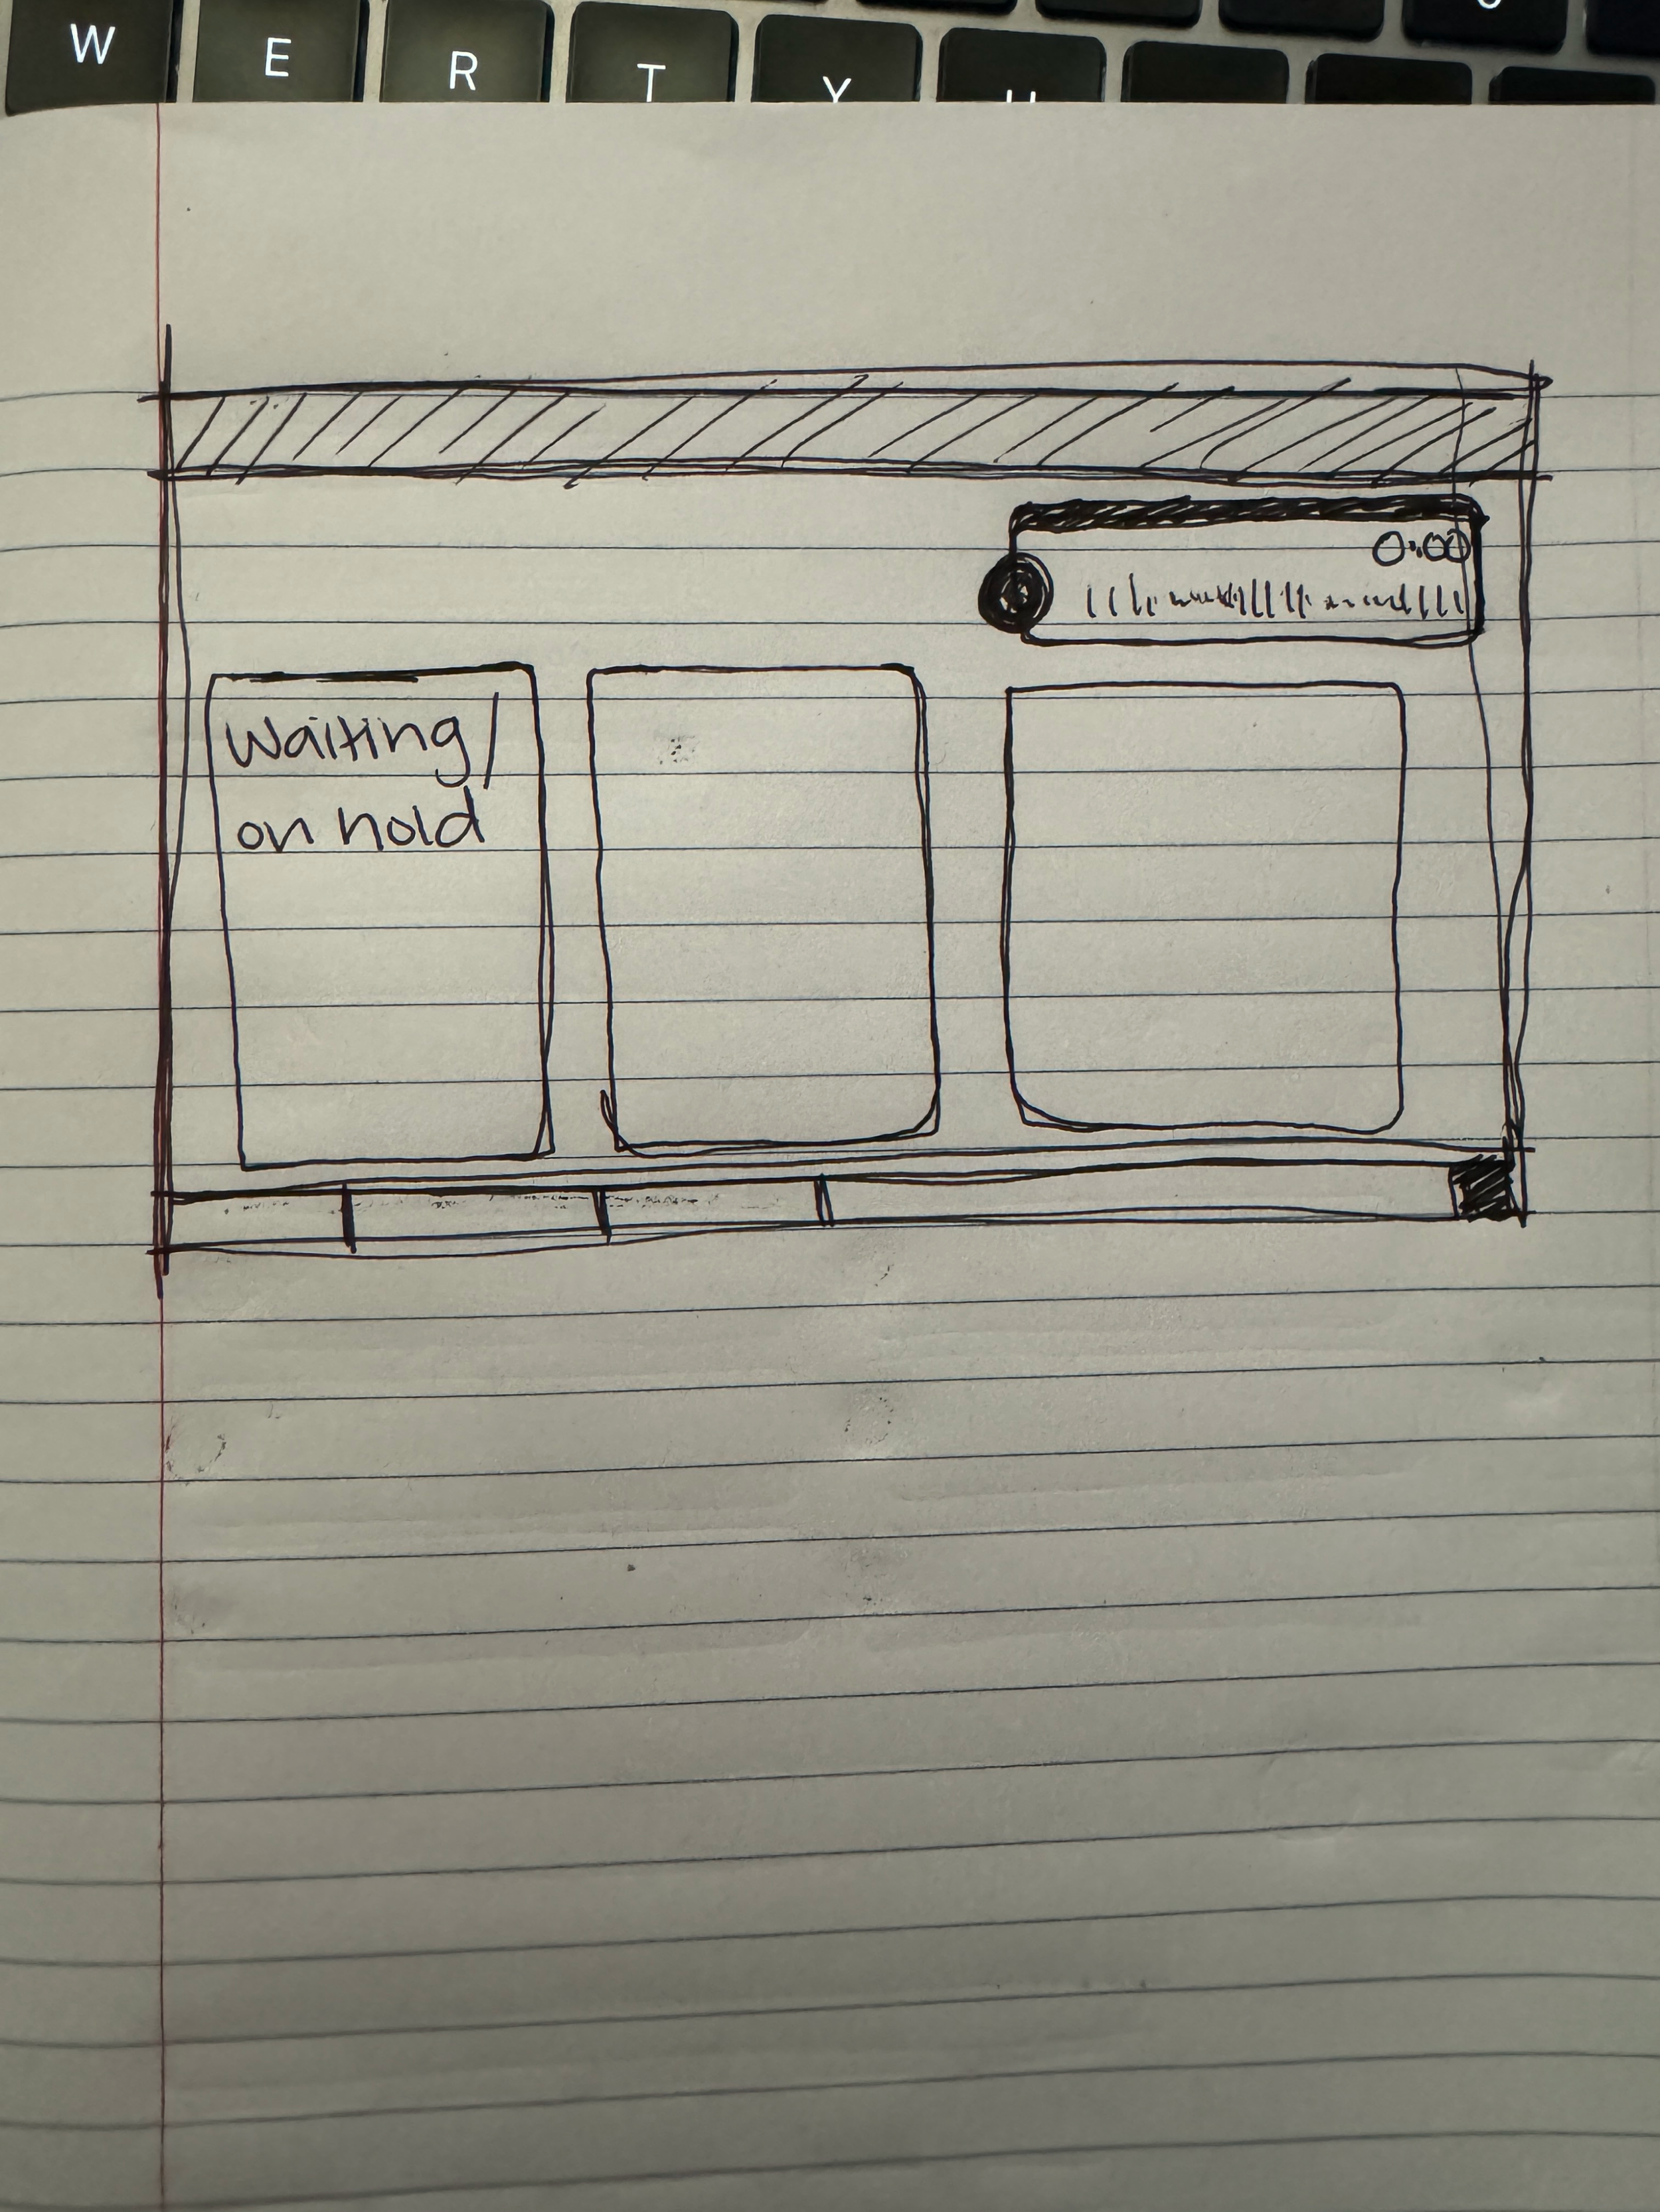 W E R T Y U
0:00
Waiting/
on hold